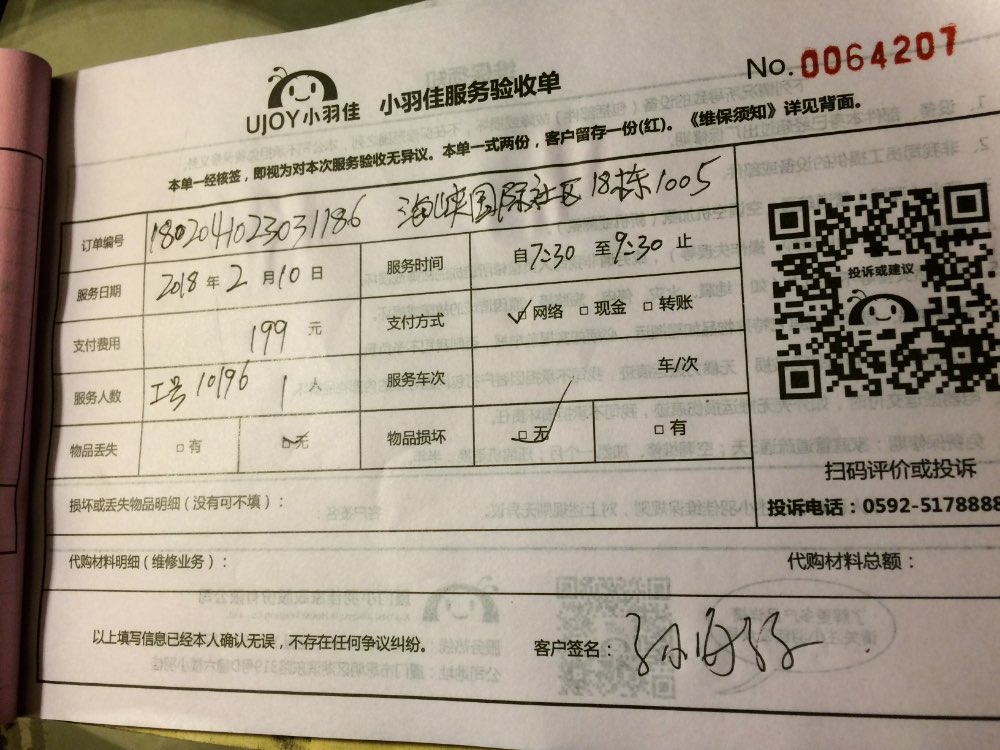 No. 0064207
UJOY小羽佳 小羽佳服务验收单
本单一经核签，即视为对本次服务验收无异议。本单一式两份，客户留存一份(红)。《维保须知》详见背面。
订单编号 1802041023031786 海峡国际社区18栋1005
服务日期 2018年2月10日 服务时间 自7:30 至9:30 止
支付费用 199 元 支付方式 ☑网络 □现金 □转账
服务人数 工号10196 1人 服务车次 车/次
物品丢失 □有 ☑无 物品损坏 ☑无 □有
损坏或丢失物品明细（没有可不填）：
投诉或建议
扫码评价或投诉
投诉电话：0592-5178888
代购材料明细（维修业务）： 代购材料总额：
以上填写信息已经本人确认无误，不存在任何争议纠纷。 客户签名：